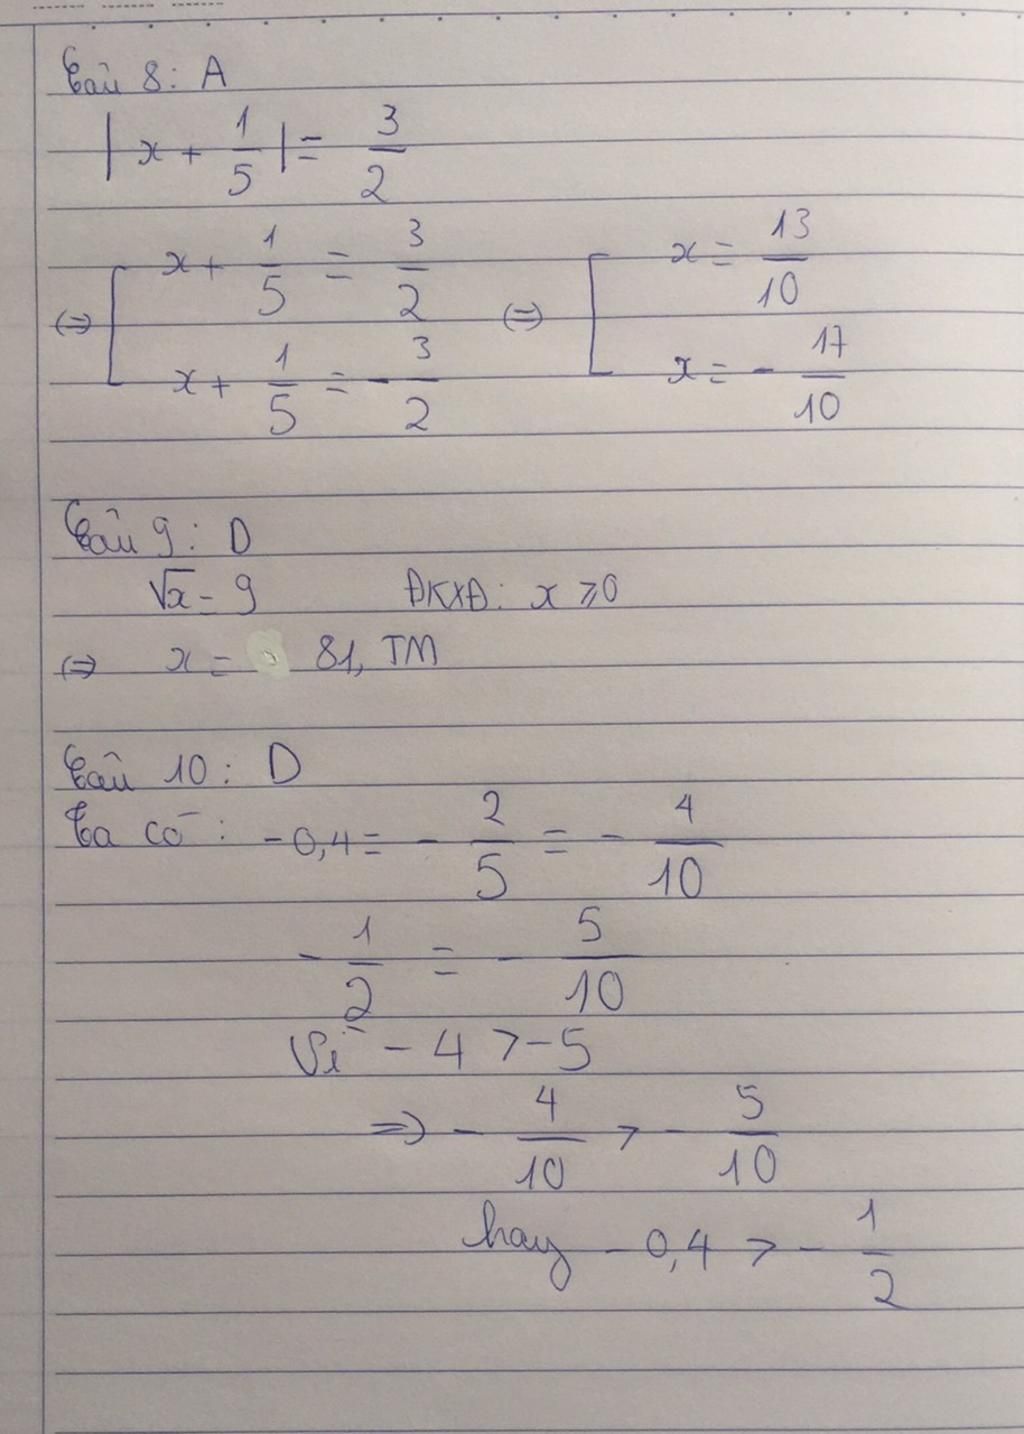 Câu 8: A
|x + 1/5| = 3/2
⇔ [ x + 1/5 = 3/2 ⇔ [ x = 13/10
x + 1/5 = - 3/2 x = - 17/10
Câu 9: D
√x = 9 ĐKXĐ: x ⩾ 0
⇔ x = 81, TM
Câu 10: D
Ta có: - 0,4 = - 2/5 = - 4/10
- 1/2 = - 5/10
Vì - 4 > - 5
⇒ - 4/10 > - 5/10
hay - 0,4 > - 1/2